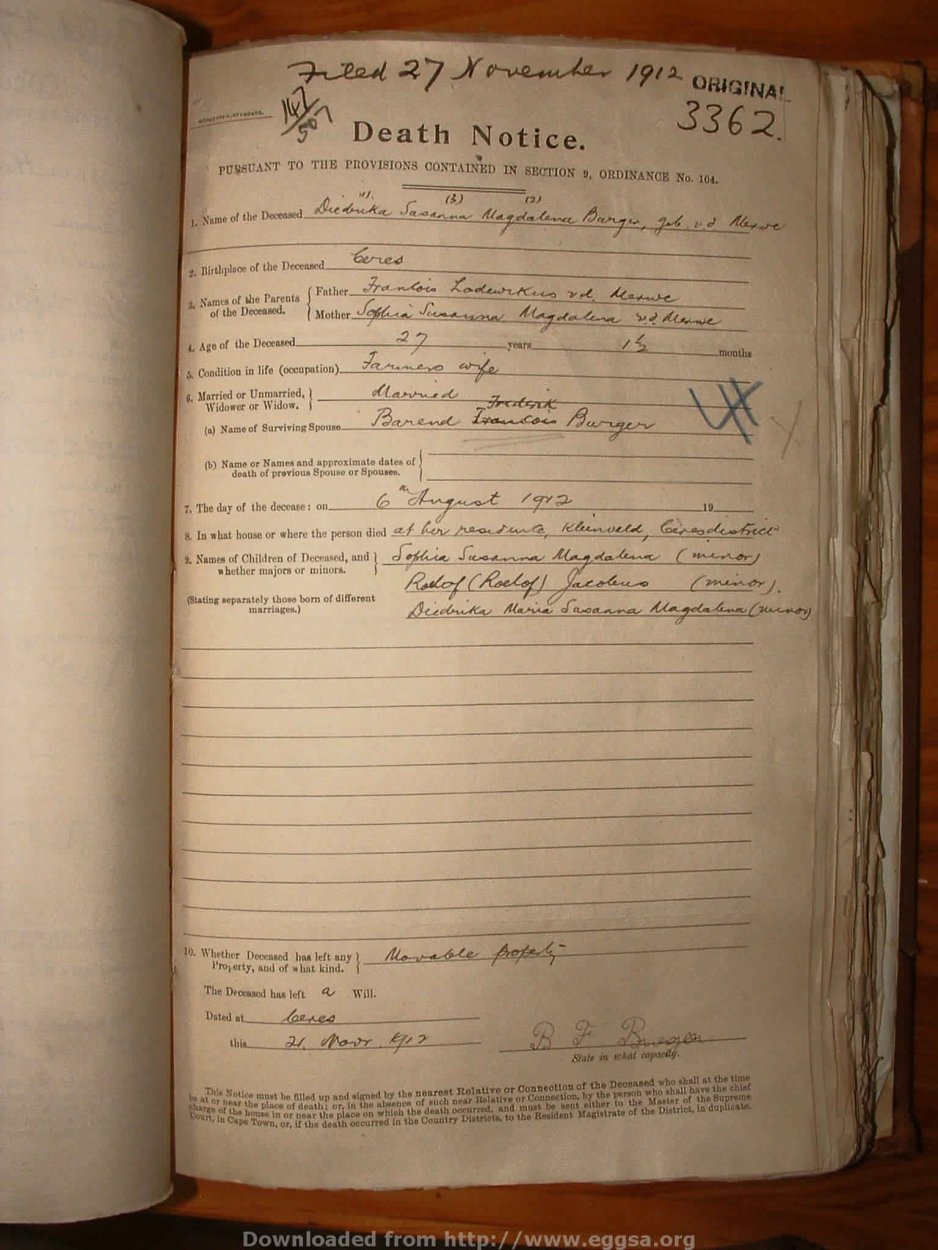 Filed 27 November 1912 ORIGINAL
3362.
Death Notice.
PURSUANT TO THE PROVISIONS CONTAINED IN SECTION 9, ORDINANCE No. 104.
(1). (3) (2)
1. Name of the Deceased Diedrika Susanna Magdalena Burger, geb. v d Merwe
2. Birthplace of the Deceased Ceres
3. Names of the Parents of the Deceased. Father Francois Lodewikus v d. Merwe
Mother Sophia Susanna Magdalena v. d. Merwe
4. Age of the Deceased 27 years 1½ months
5. Condition in life (occupation) Farmers wife
6. Married or Unmarried, Widower or Widow. Married
Frederik
(a) Name of Surviving Spouse Barend Francois Burger
(b) Name or Names and approximate dates of death of previous Spouse or Spouses.
7. The day of the decease: on 6th August 1912 19
8. In what house or where the person died at her residence, Kleinveld, Ceres district
9. Names of Children of Deceased, and whether majors or minors. Sophia Susanna Magdalena (minor)
Roelof (Roelof) Jacobus (minor).
(Stating separately those born of different marriages.) Diedrika Maria Susanna Magdalena (minor)
10. Whether Deceased has left any Property, and of what kind. Movable property
The Deceased has left a Will.
Dated at Ceres
this 21. Novr. 1912 B F Burger
State in what capacity.
This Notice must be filled up and signed by the nearest Relative or Connection of the Deceased who shall at the time
be at or near the place of death; or, in the absence of such near Relative or Connection, by the person who shall have the chief
charge of the house in or near the place on which the death occurred, and must be sent either to the Master of the Supreme
Court, in Cape Town, or, if the death occurred in the Country Districts, to the Resident Magistrate of the District, in duplicate.
Downloaded from http://www.eggsa.org